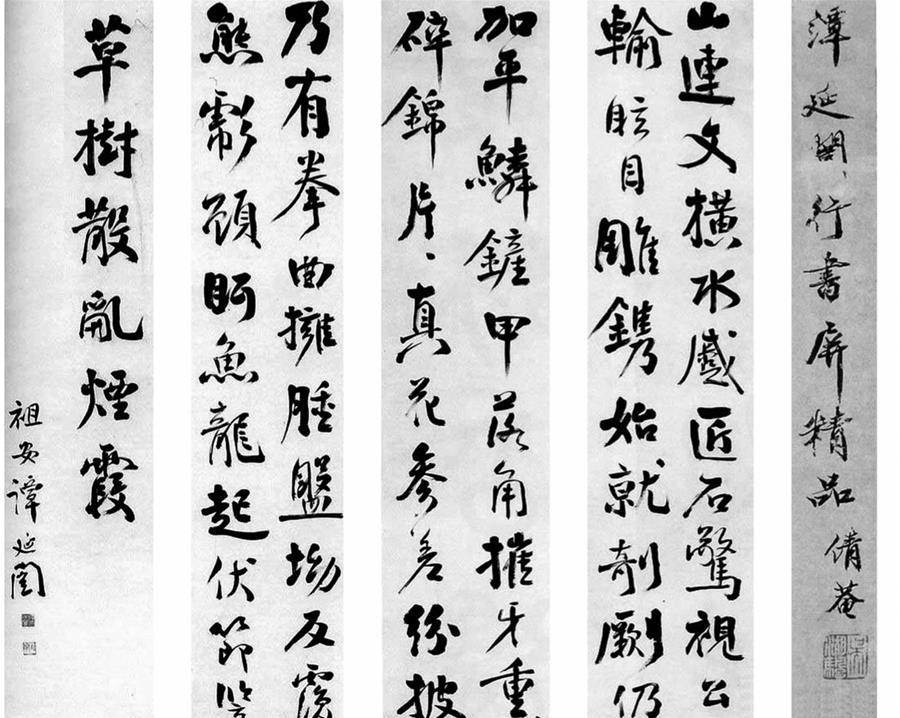 譚延闓行書屏精品 倩菴
山連文橫水蹙匠石驚視公
輸眩目雕鐫始就剞劂仍
加平鱗鏟甲落角摧牙重
碎錦片〻真花參差紛披
乃有拳曲擁腫盤坳反覆
熊彪顧眄魚龍起伏節豎
草樹散亂煙霞
祖安譚延闓